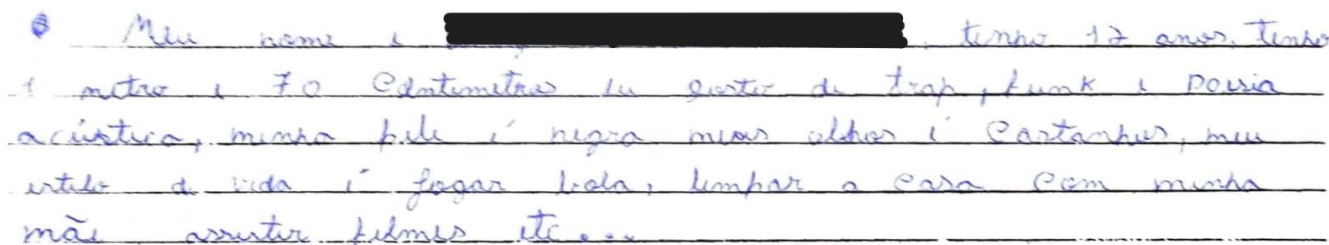 Meu nome e , tenho 12 anos, tenho
1 metro e 70 Centimetros eu gosto de trap, funk e Poesia
acústica, minha pele é negra meus olhos é Castanhos, meu
estilo de vida é jogar bola, limpar a casa com minha
mãe assistir filmes etc...